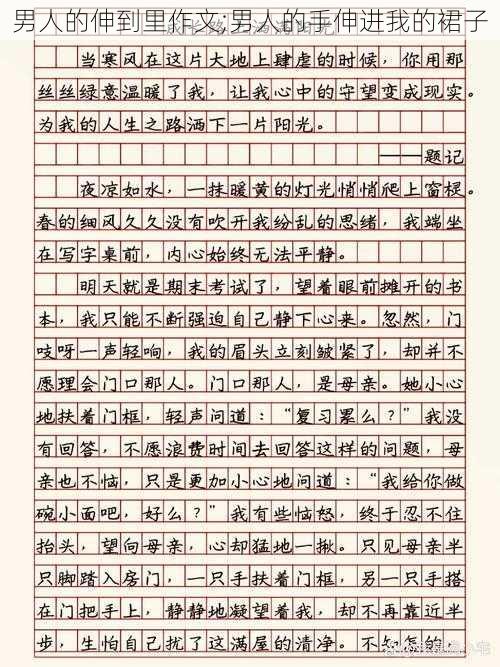 男人的伸到里作文;男人的手伸进我的裙子
当寒风在这片大地上肆虐的时候，你用那
丝丝绿意温暖了我，让我心中的守望变成现实。
为我的人生之路洒下一片阳光。
——题记
夜凉如水，一抹暖黄的灯光悄悄爬上窗棂。
春的细风久久没有吹开我纷乱的思绪，我端坐
在写字桌前，内心始终无法平静。
明天就是期末考试了，望着眼前摊开的书
本，我只能不断强迫自己静下心来。忽然，门
吱呀一声轻响，我的眉头立刻皱紧了，却并不
愿理会门口那人。门口那人，是母亲。她小心
地扶着门框，轻声问道：“复习累么？”我没
有回答，不愿浪费时间去回答这样的问题，母
亲也不恼，只是更加小心地问道：“我给你做
碗小面吧，好么？”我有些恼怒，终于忍不住
抬头，望向母亲，心却猛地一揪。只见母亲半
只脚踏入房门，一只手扶着门框，另一只手搭
在门把手上，静静地凝望着我，却不再靠近半
步，生怕自己扰了这满屋的清净。不知怎的，